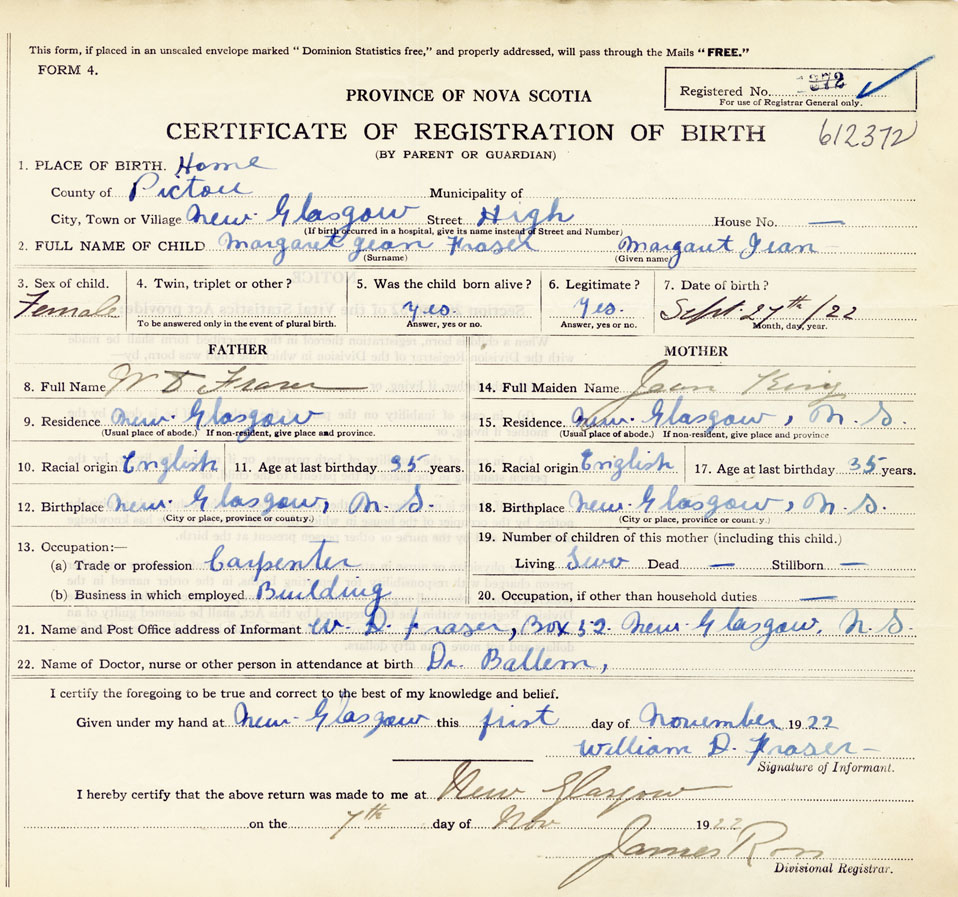 This form, if placed in an unsealed envelope marked "Dominion Statistics free," and properly addressed, will pass through the Mails "FREE."
FORM 4.
Registered No. 872
For use of Registrar General only.
PROVINCE OF NOVA SCOTIA
CERTIFICATE OF REGISTRATION OF BIRTH 612372
(BY PARENT OR GUARDIAN)
1. PLACE OF BIRTH. Home
County of Pictou Municipality of
City, Town or Village New-Glasgow Street High House No. —
(If birth occurred in a hospital, give its name instead of Street and Number)
2. FULL NAME OF CHILD Margaret Jean Fraser Margaret Jean
(Surname) (Given name)
3. Sex of child. 4. Twin, triplet or other? 5. Was the child born alive? 6. Legitimate? 7. Date of birth?
Female yes. Yes. Sept. 27th/22
To be answered only in the event of plural birth. Answer, yes or no. Answer, yes or no. Month, day, year.
FATHER MOTHER
8. Full Name W D Fraser 14. Full Maiden Name Jean King
9. Residence New-Glasgow 15. Residence New-Glasgow, N. S.
(Usual place of abode.) If non-resident, give place and province. (Usual place of abode.) If non-resident, give place and province
10. Racial origin English 11. Age at last birthday 35 years. 16. Racial origin English 17. Age at last birthday 35 years.
12. Birthplace New-Glasgow, N. S. 18. Birthplace New-Glasgow, N. S.
(City or place, province or country.) (City or place, province or country.)
13. Occupation:— 19. Number of children of this mother (including this child.)
(a) Trade or profession Carpenter Living Dead — Stillborn —
(b) Business in which employed Building 20. Occupation, if other than household duties —
21. Name and Post Office address of Informant W. D. Fraser, Box 52 New-Glasgow, N. S.
22. Name of Doctor, nurse or other person in attendance at birth Dr. Ballem,
I certify the foregoing to be true and correct to the best of my knowledge and belief.
Given under my hand at New-Glasgow this first day of November 1922
William D. Fraser—
Signature of Informant.
I hereby certify that the above return was made to me at New Glasgow
on the 7th day of Nov 1922
James Ross
Divisional Registrar.